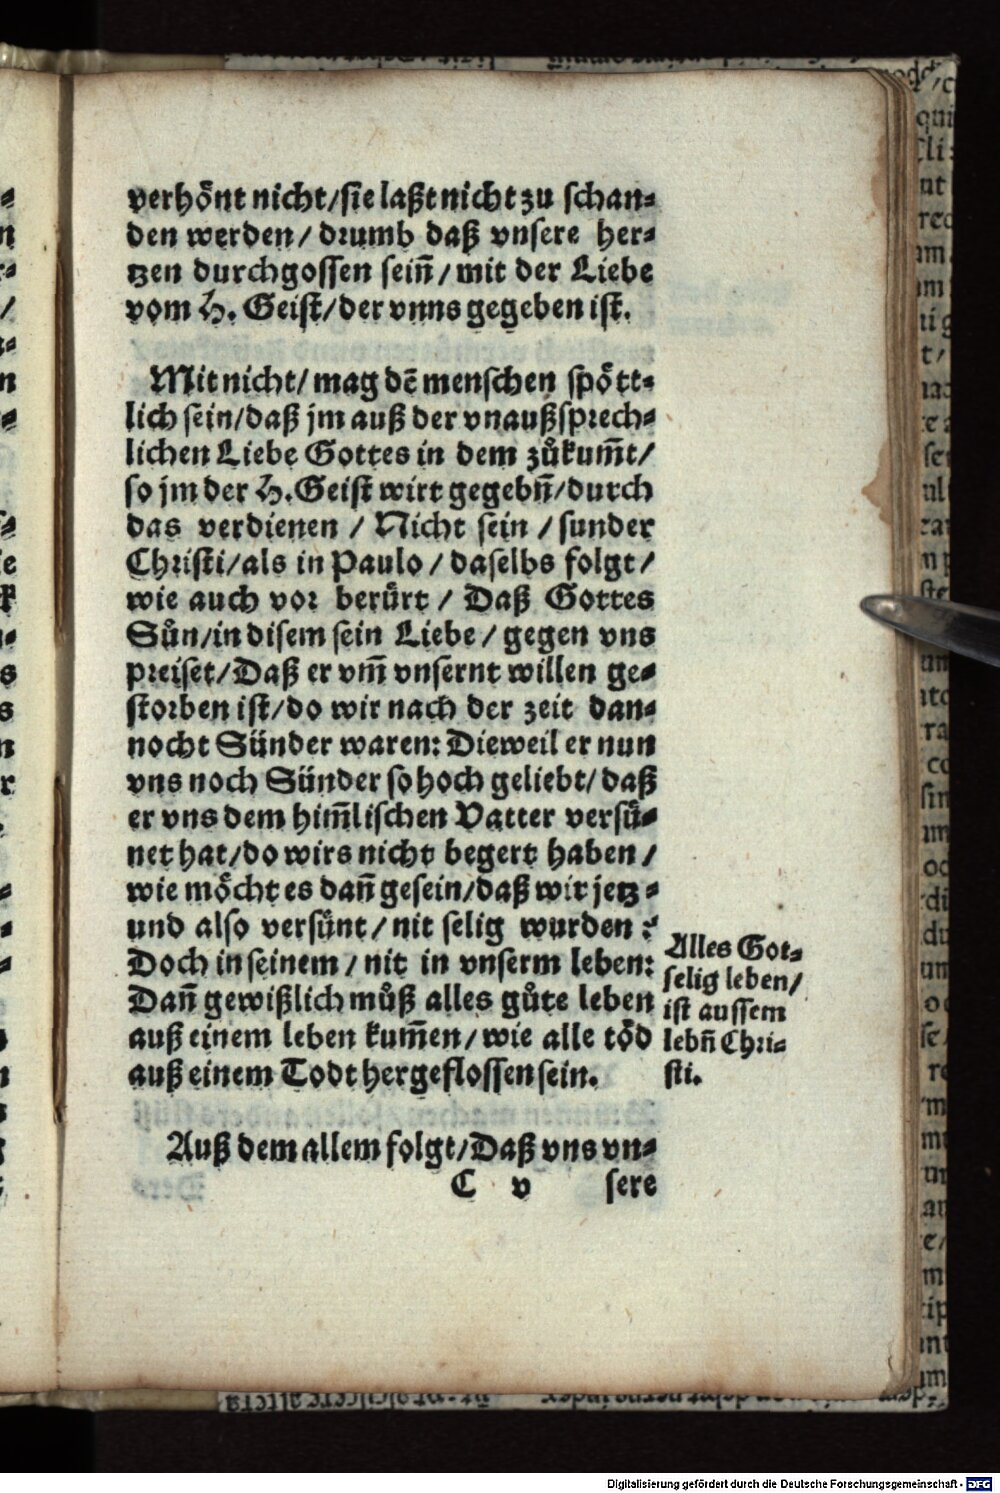 verhönt nicht/sie laßt nicht zu schan⸗
den werden/ drumb daß vnsere her⸗
tzen durchgossen sein̄/ mit der Liebe
vom H. Geist/der vnns gegeben ist.
Mit nicht/ mag dē menschen spött⸗
lich sein/daß jm auß der vnaußsprech⸗
lichen Liebe Gottes in dem zůkum̄t/
so jm der H.Geist wirt gegebn̄/durch
das verdienen / Nicht sein / sunder
Christi/als in Paulo / daselbs folgt/
wie auch vor berürt / Daß Gottes
Sůn/in disem sein Liebe/ gegen vns
preiset/Daß er vm̄ vnsernt willen ge⸗
storben ist/do wir nach der zeit dan⸗
nocht Sünder waren: Dieweil er nun
vns noch Sünder so hoch geliebt/ daß
er vns dem him̄lischen Vatter versü⸗
net hat/do wirs nicht begert haben /
wie möcht es dan̄ gesein/daß wir jetz⸗
und also versünt/ nit selig wurden ?
Doch in seinem / nit in vnserm leben:
Dan̄ gewißlich můß alles gůte leben
auß einem leben kum̄en/ wie alle töd
auß einem Todt hergeflossen sein.
Alles Got⸗
selig leben/
ist aussem
lebn̄ Chri⸗
sti.
Auß dem allem folgt/Daß vns vn⸗
C v sere
Digitalisierung gefördert durch die Deutsche Forschungsgemeinschaft - DFG